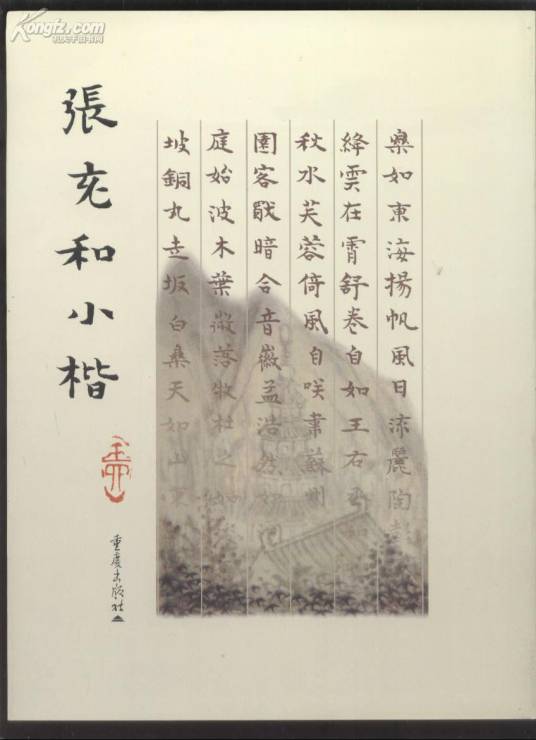 張充和小楷
樂如東海揚帆風日流麗陶彭
絳雲在霄舒卷自如王右丞如
秋水芙蓉倚風自咲韋蘇州
園客暗合音徽孟浩然如洞
庭始波木葉微落牧杜之如
坡銅丸走坂白樂天如山東
重慶出版社
Kongfz.com
孔夫子旧书网